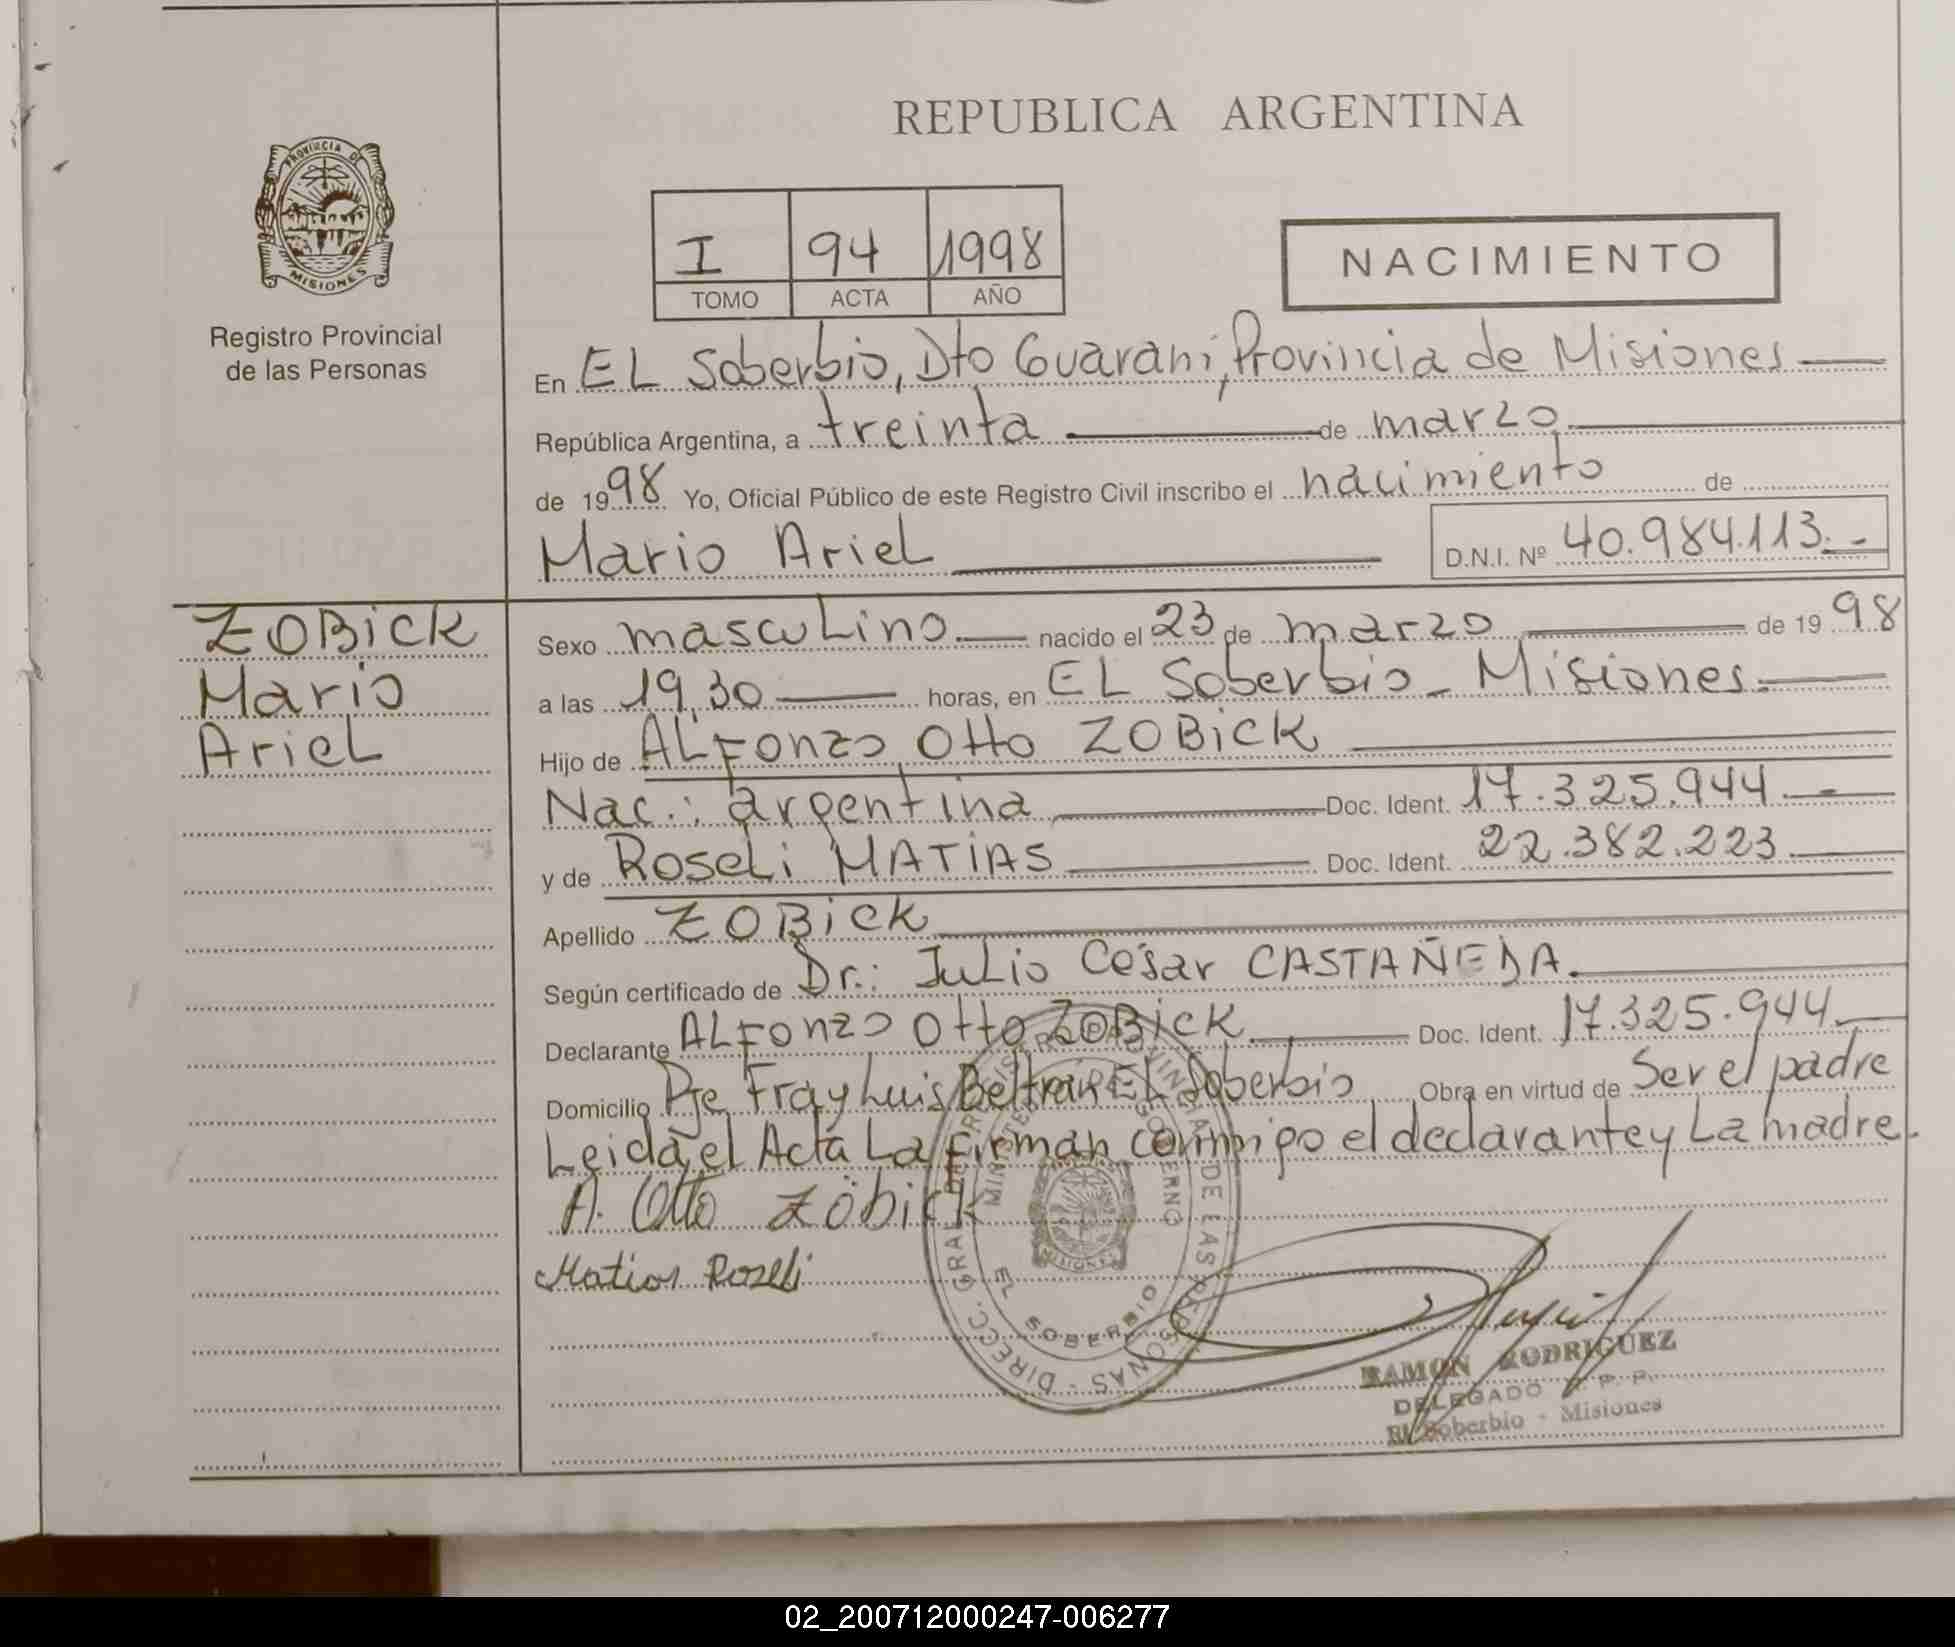 REPUBLICA ARGENTINA
PROVINCIA DE
MISIONES
Registro Provincial
de las Personas
I 94 1998
TOMO ACTA AÑO
NACIMIENTO
En EL Soberbio, Dto Guarani, Provincia de Misiones
República Argentina, a treinta de marzo
de 1998 Yo, Oficial Público de este Registro Civil inscribo el nacimiento de
Mario Ariel D.N.I. Nº 40.984.113.-
ZOBICK
Mario
Ariel
Sexo masculino nacido el 23 de marzo de 1998
a las 19,30 horas, en EL Soberbio - Misiones.
Hijo de ALFonzo Otto ZOBICK
Nac.: argentina Doc. Ident. 17.325.944.-
y de Roseli MATIAS Doc. Ident. 22.382.223.
Apellido ZOBICK
Según certificado de Dr.: Julio César CASTAÑEDA.
Declarante ALFonzo Otto ZOBICK Doc. Ident. 17.325.944.
Domicilio Pje Fray Luis Beltrán EL Soberbio Obra en virtud de Ser el padre
Leida el Acta La Firman conmigo el declarante y La madre.
A. Otto Zöbick
Matias Roseli
DIRECC. GRAL. DE LAS PERSONAS
EL SOBERBIO
MISIONES
RAMON RODRIGUEZ
DELEGADO R. P. P.
El Soberbio - Misiones
02_200712000247-006277